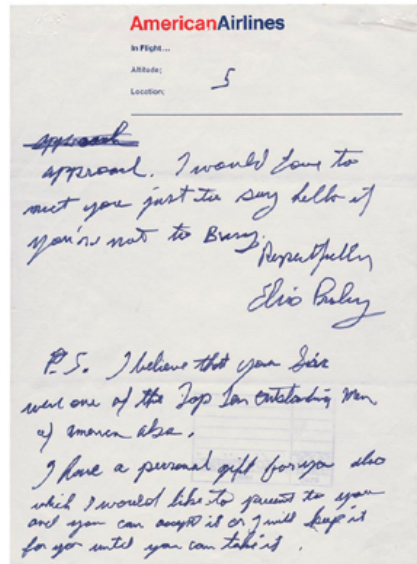 AmericanAirlines
In Flight...
Altitude;
Location;
5
approach
approach. I would love to
meet you just to say hello if
you're not to Busy.
Respectfully
Elvis Presley
P.S. I believe that you Sir
were one of the Top Ten Outstanding Men
of america also.
I have a personal gift for you also
which I would like to present to you
and you can accept it or I will keep it
for you until you can take it.